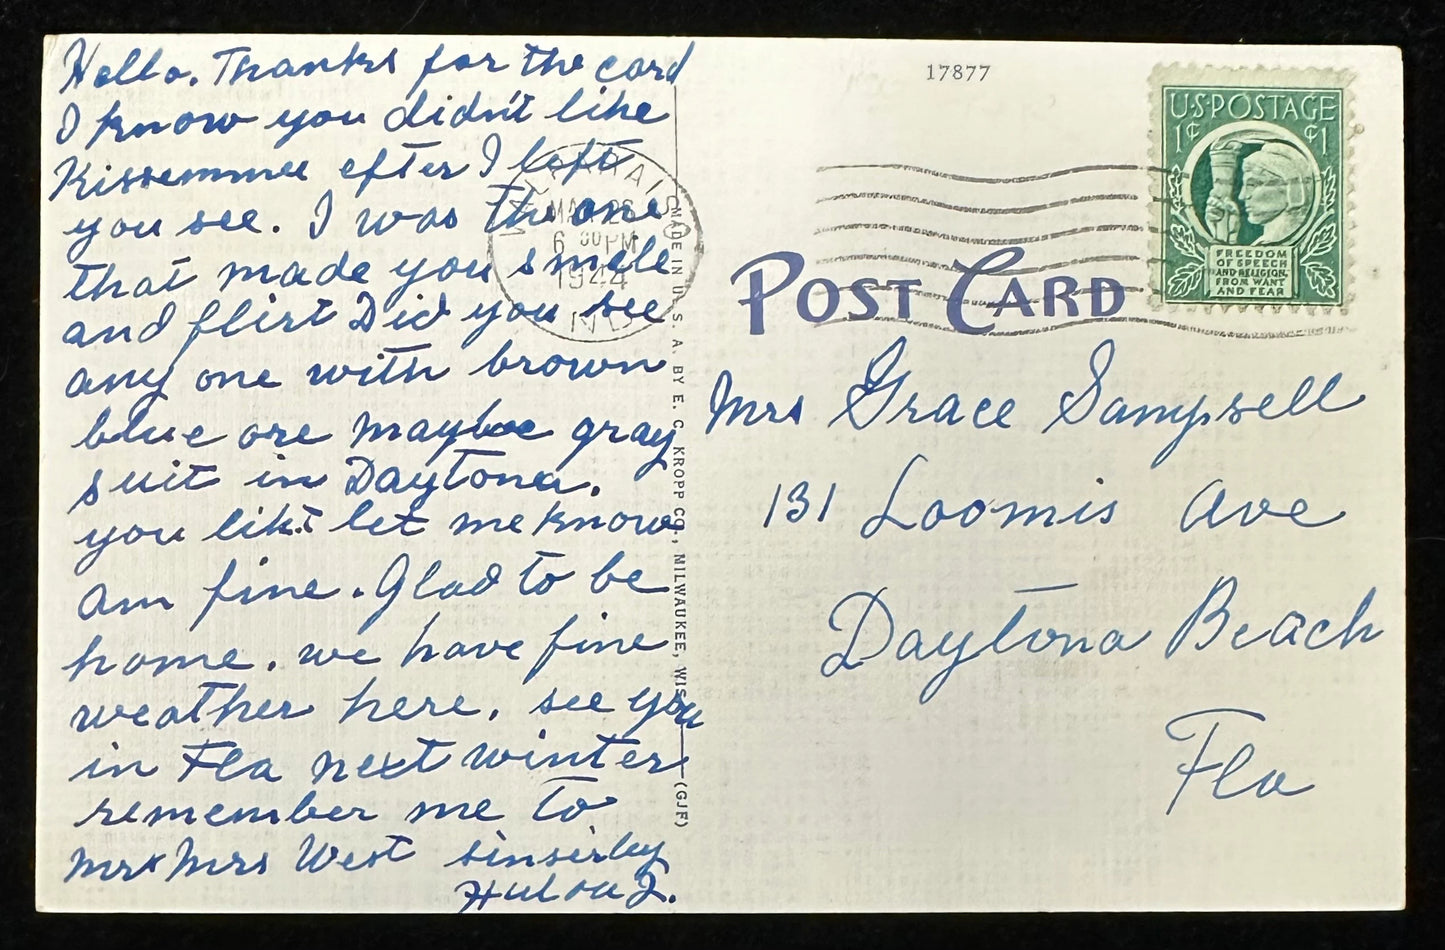 Hello. Thanks for the card
I know you didn't like
Kissemmee efter I left
you see. I was the one
that made you smele
and flirt Did you see
any one with brown
blue ore maybee gray
suit in Daytona.
you likt let me know
am fine. Glad to be
home. we have fine
weather here. see you
in Fla next winter
remember me to
Mr & Mrs West sinserly
MAR 26
6 00 PM
1944
IND
MADE IN U. S. A. BY E. C. KROPP CO., MILWAUKEE, WIS.
(GJF)
17877
POST CARD
U·S·POSTAGE
1¢ ¢1
FREEDOM
OF SPEECH
AND RELIGION,
FROM WANT
AND FEAR
Mrs Grace Sampsell
131 Loomis Ave
Daytona Beach
Fla